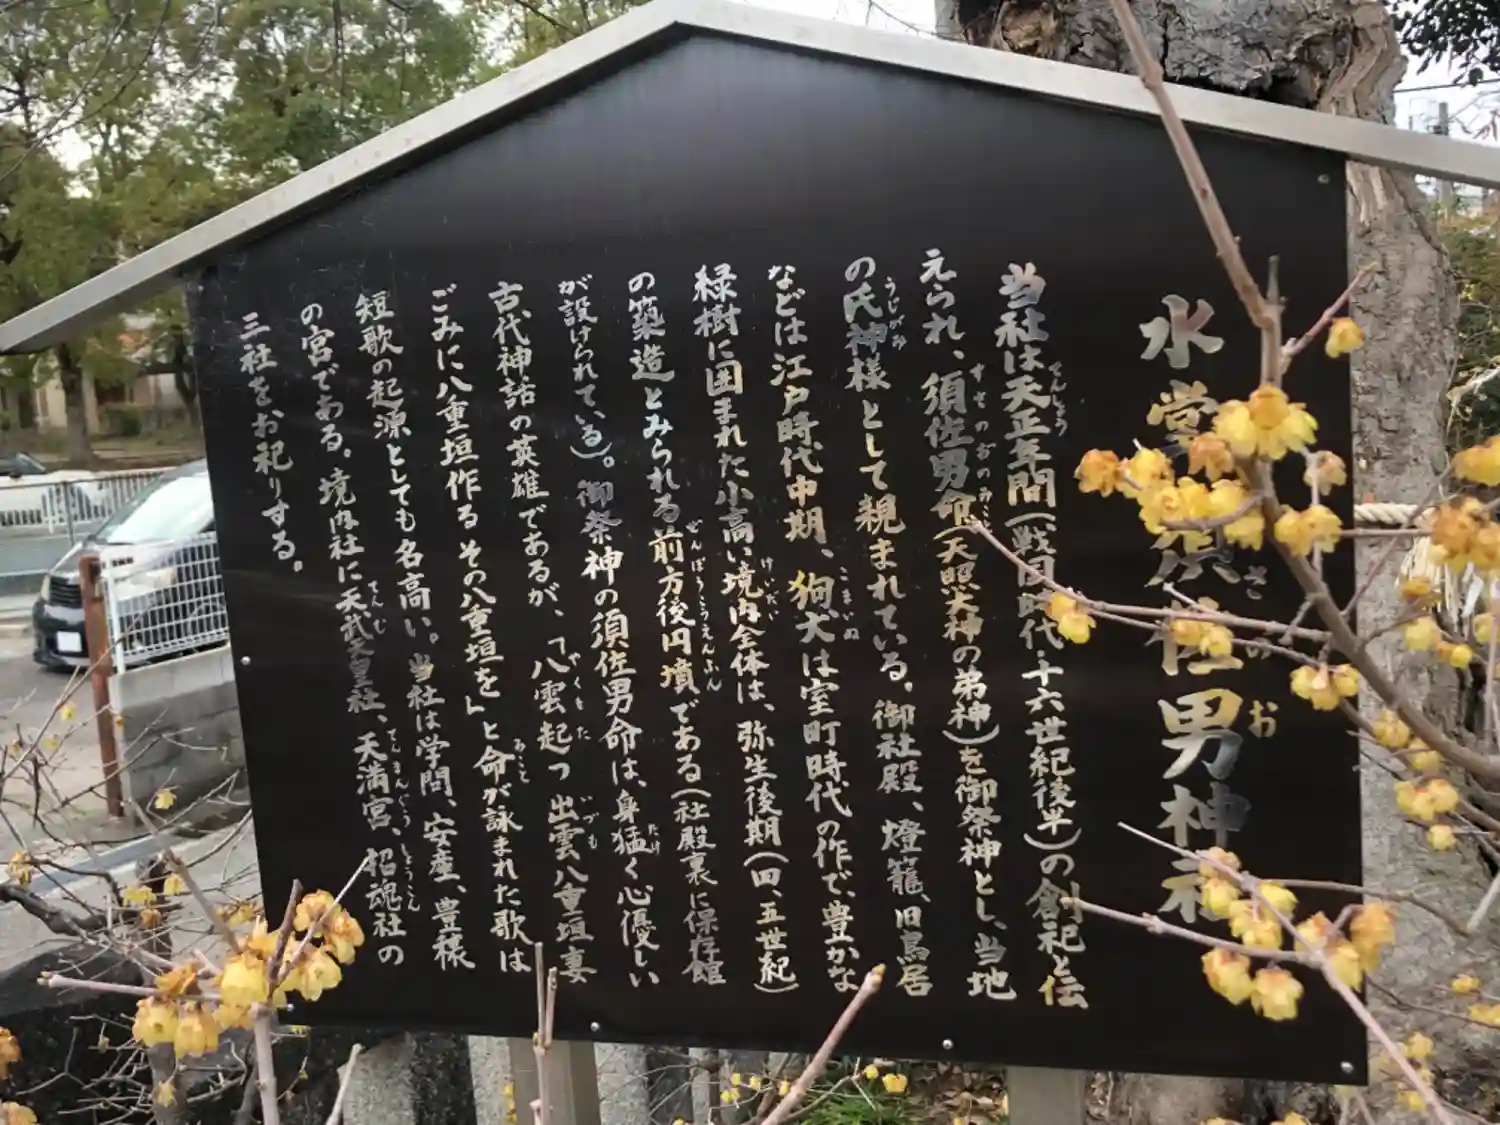 水堂須佐男神社
当社は天正年間(戦国時代・十六世紀後半)の創祀と伝
えられ、須佐男命(天照大神の弟神)を御祭神とし、当地
の氏神様として親まれている。御社殿、燈籠、旧鳥居
などは江戸時代中期、狗犬は室町時代の作で、豊かな
緑樹に囲まれた小高い境内全体は、弥生後期(四、五世紀)
の築造とみられる前方後円墳である(社殿裏に保存館
が設けられている)。御祭神の須佐男命は、身猛く心優しい
古代神話の英雄であるが、「八雲起つ 出雲八重垣妻
ごみに八重垣作る その八重垣を」と命が詠まれた歌は
短歌の起源としても名高い。当社は学問、安産、豊穣
の宮である。境内社に天武天皇社、天満宮、招魂社の
三社をお祀りする。